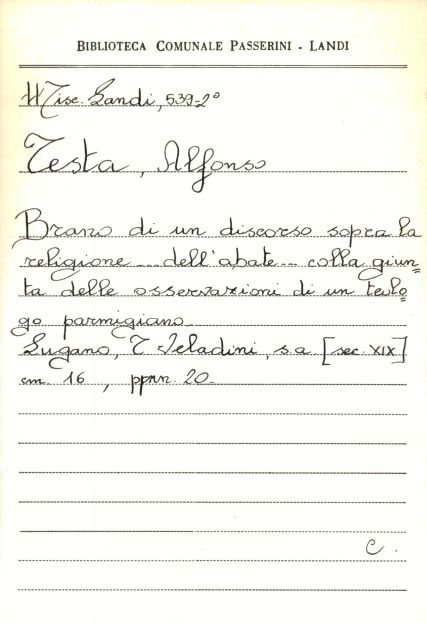 BIBLIOTECA COMUNALE PASSERINI - LANDI
Misc. Landi, 539-2°
Testa, Alfonso
Brano di un discorso sopra la
religione ... dell'abate ... colla giun=
ta delle osservazioni di un teolo=
go parmigiano
Lugano, T Veladini, s.a [sec. XIX]
cm. 16, ppnn. 20
C.